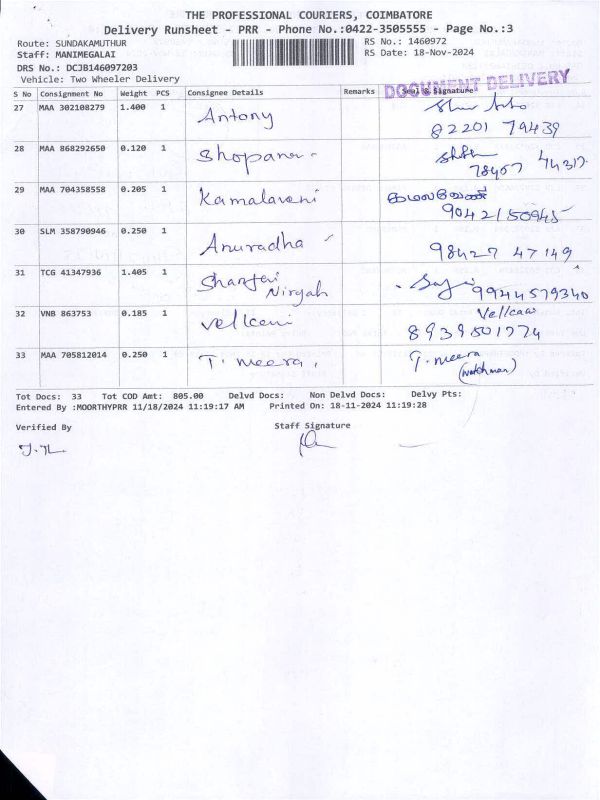 THE PROFESSIONAL COURIERS, COIMBATORE
Delivery Runsheet - PRR - Phone No.:0422-3505555 - Page No.:3
Route: SUNDAKAMUTHUR
Staff: MANIMEGALAI
DRS No.: DCJB146097203
Vehicle: Two Wheeler Delivery
RS No.: 1460972
RS Date: 18-Nov-2024
DOCUMENT DELIVERY
S No Consignment No Weight PCS Consignee Details Remarks Seal & Signature
27 MAA 302108279 1.400 1 Antony
82201 79439
28 MAA 868292650 0.120 1 Shopana
78457 44317
29 MAA 704358558 0.205 1 Kamalaveni கமலவேணி
90421 50945
30 SLM 358790946 0.250 1 Anuradha 98427 47149
31 TCG 41347936 1.405 1
9944579340
32 VNB 863753 0.185 1
8939501774
33 MAA 705812014 0.250 1 T. meera. T. meera
(watchman)
Tot Docs: 33 Tot COD Amt: 805.00 Delvd Docs: Non Delvd Docs: Delvy Pts:
Entered By :MOORTHYPRR 11/18/2024 11:19:17 AM Printed On: 18-11-2024 11:19:28
Verified By Staff Signature